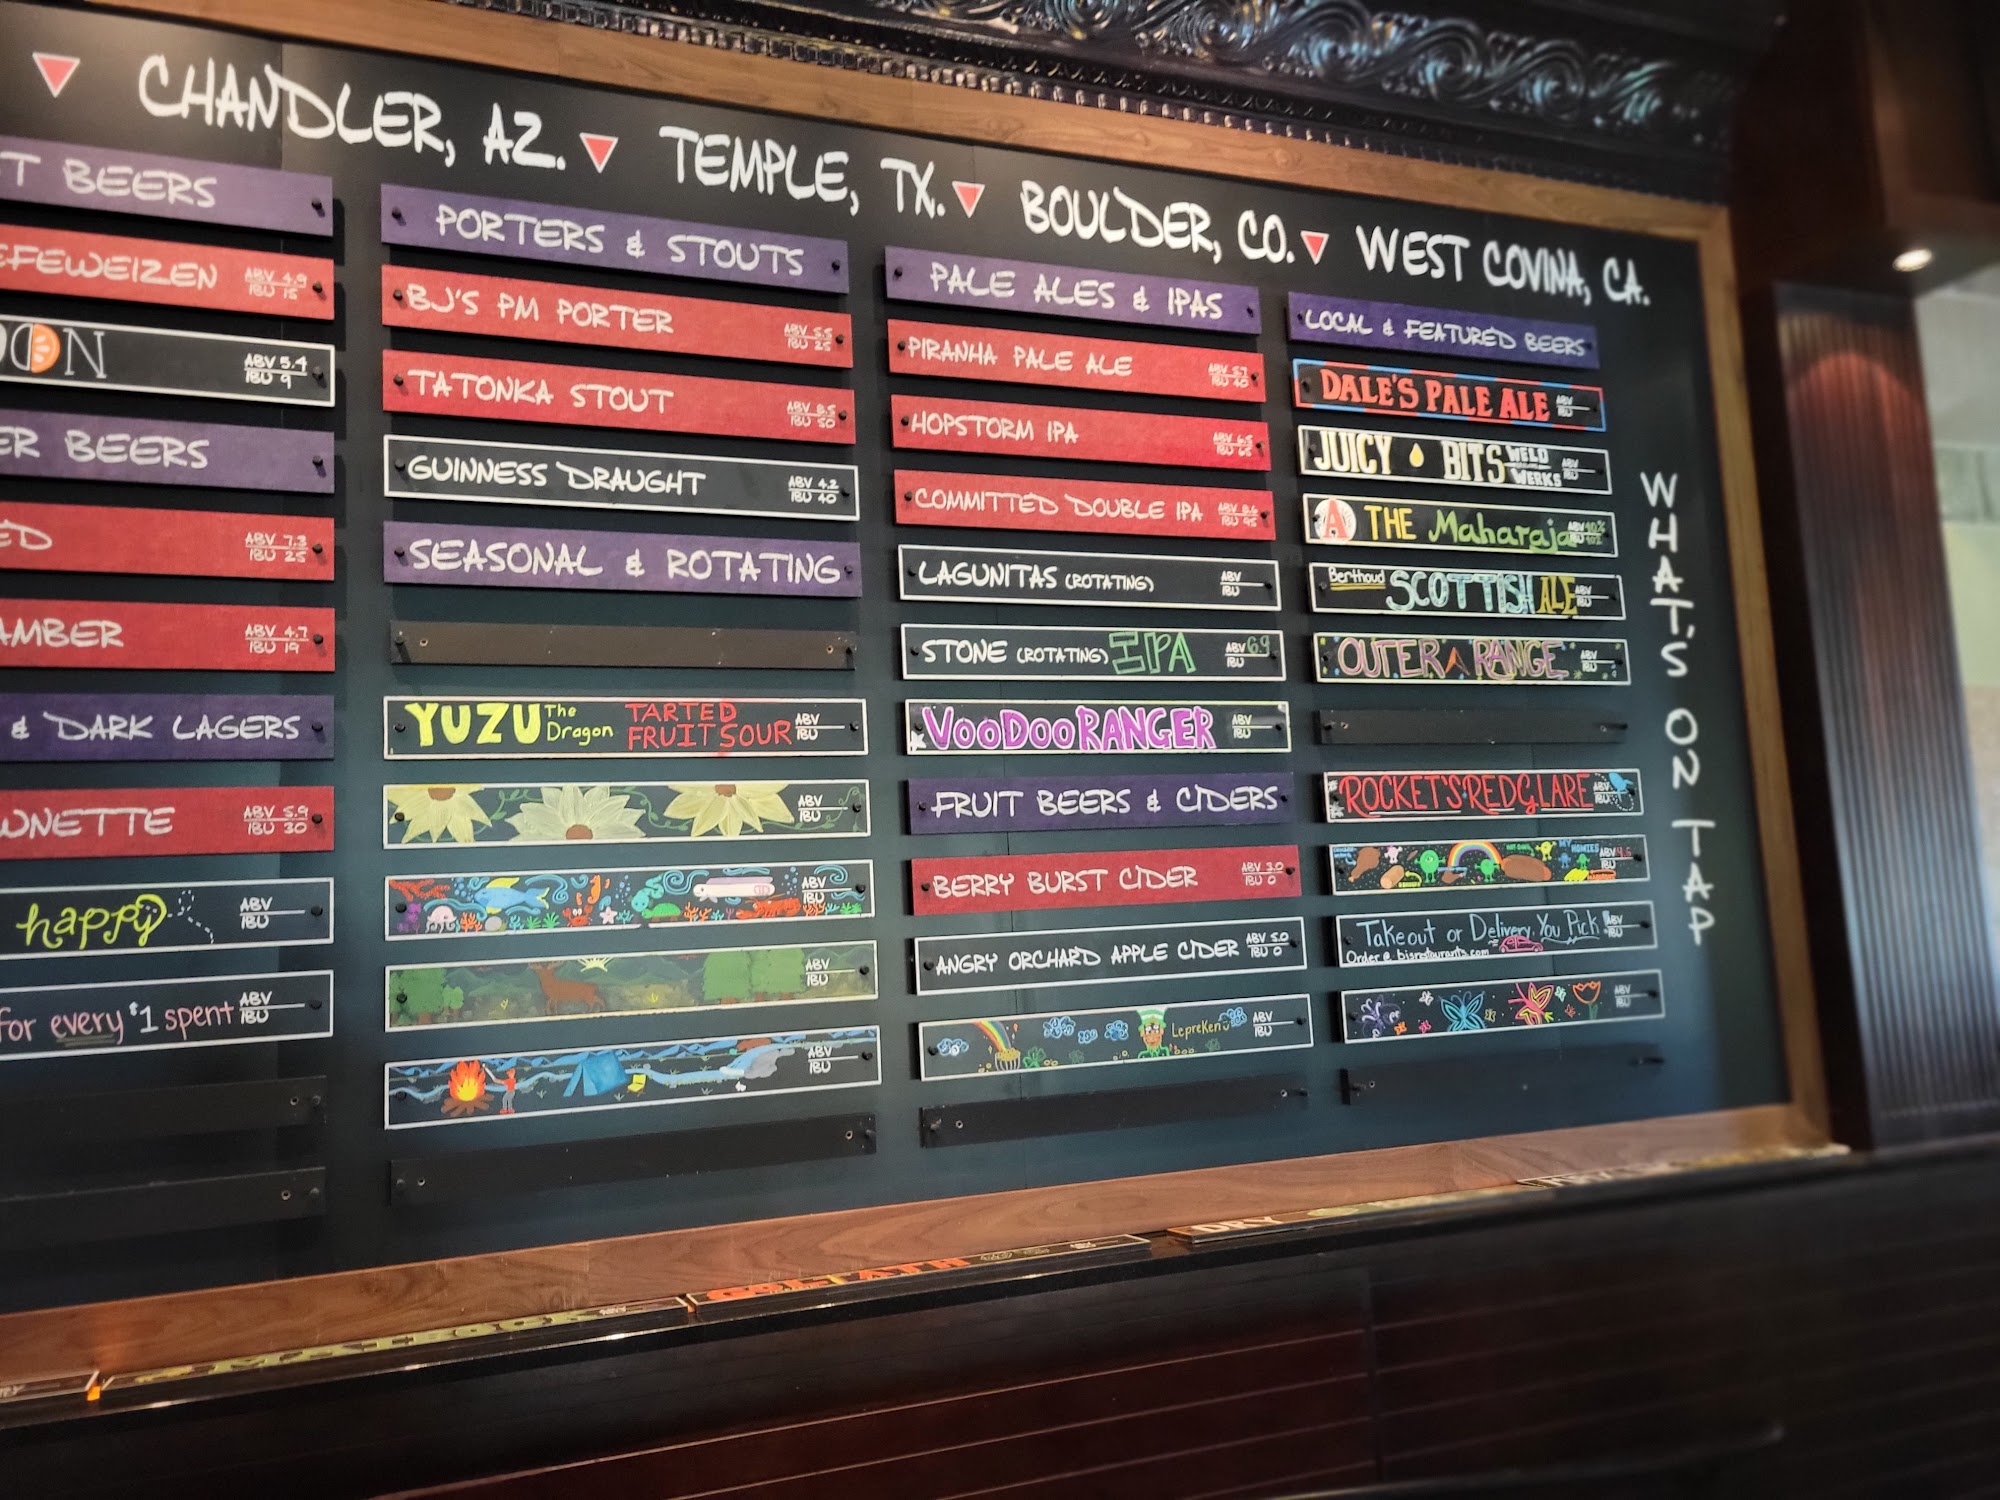 CHANDLER, AZ. TEMPLE, TX. BOULDER, CO. WEST COVINA, CA.
T BEERS
EFEWEIZEN ABV 4.9
IBU 15
OON ABV 5.4
IBU 9
ER BEERS
ED ABV 7.3
IBU 25
AMBER ABV 4.7
IBU 19
& DARK LAGERS
WNETTE ABV 5.9
IBU 30
happy ABV
IBU
for every $1 spent ABV
IBU
PORTERS & STOUTS
BJ'S PM PORTER ABV 5.5
IBU 25
TATONKA STOUT ABV 8.5
IBU 50
GUINNESS DRAUGHT ABV 4.2
IBU 40
SEASONAL & ROTATING
YUZU The Dragon TARTED FRUIT SOUR ABV
IBU
ABV
IBU
ABV
IBU
ABV
IBU
ABV
IBU
PALE ALES & IPAS
PIRANHA PALE ALE ABV 5.7
IBU 40
HOPSTORM IPA ABV 6.5
IBU 65
COMMITTED DOUBLE IPA ABV 8.6
IBU 95
LAGUNITAS (ROTATING) ABV
IBU
STONE (ROTATING) IPA ABV 6.9
IBU
VOODOO RANGER ABV
IBU
FRUIT BEERS & CIDERS
BERRY BURST CIDER ABV 3.0
IBU 0
ANGRY ORCHARD APPLE CIDER ABV 5.0
IBU 0
LepreKen ABV
IBU
LOCAL & FEATURED BEERS
DALE'S PALE ALE ABV
IBU
JUICY BITS WELD WERKS ABV
IBU
A THE Maharaja ABV 10%
IBU
Berthoud SCOTTISH ALE ABV
IBU
OUTER RANGE ABV
IBU
ROCKET'S RED GLARE ABV
IBU
MY HOMIES ABV 4.5
IBU
Takeout or Delivery, You Pick ABV
IBU
Order @ bjsrestaurants.com
ABV
IBU
WHAT'S ON TAP
DRY